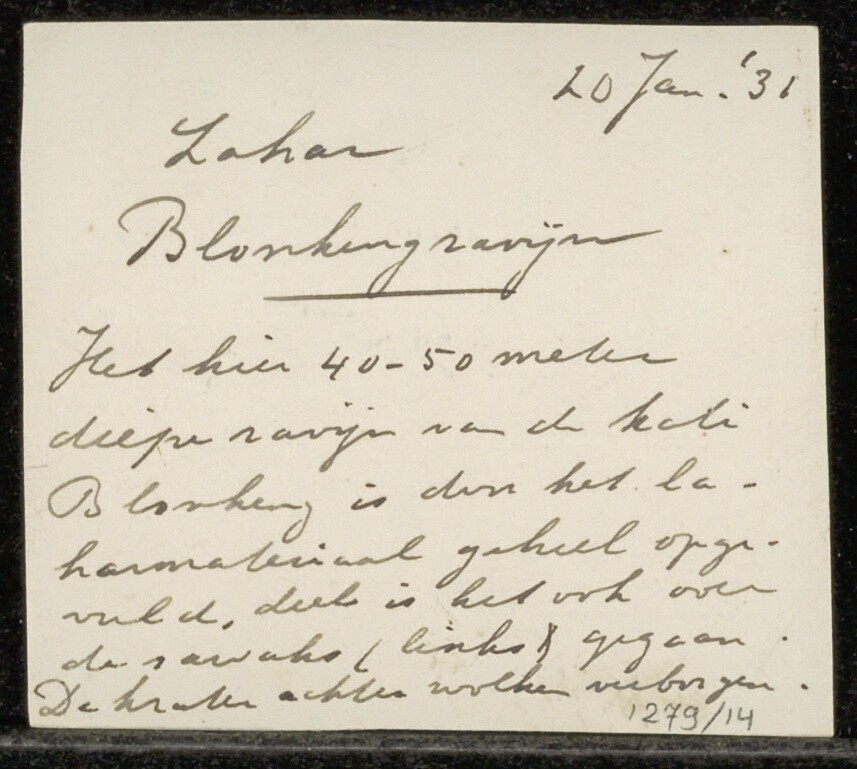 20 Jan. '31
Lahar
Blonkengravijn
Het hier 40-50 meter
diepe ravijn van de kali
Blonkeng is door het la-
harmateriaal geheel opge-
vuld, deels is het ook over
de sawahs (links) gegaan.
De krater achter wolken verborgen.
1279/14